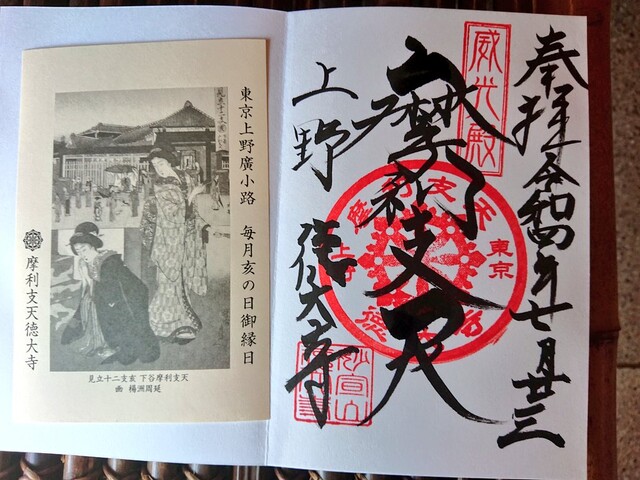 奉拝 令和四年七月廿三
威光殿
摩利支天
東京
上野
徳大寺
妙宣山
東京上野廣小路 毎月亥の日御縁日
摩利支天徳大寺
天支利摩谷下 亥支二十立見
延周洲楊 画